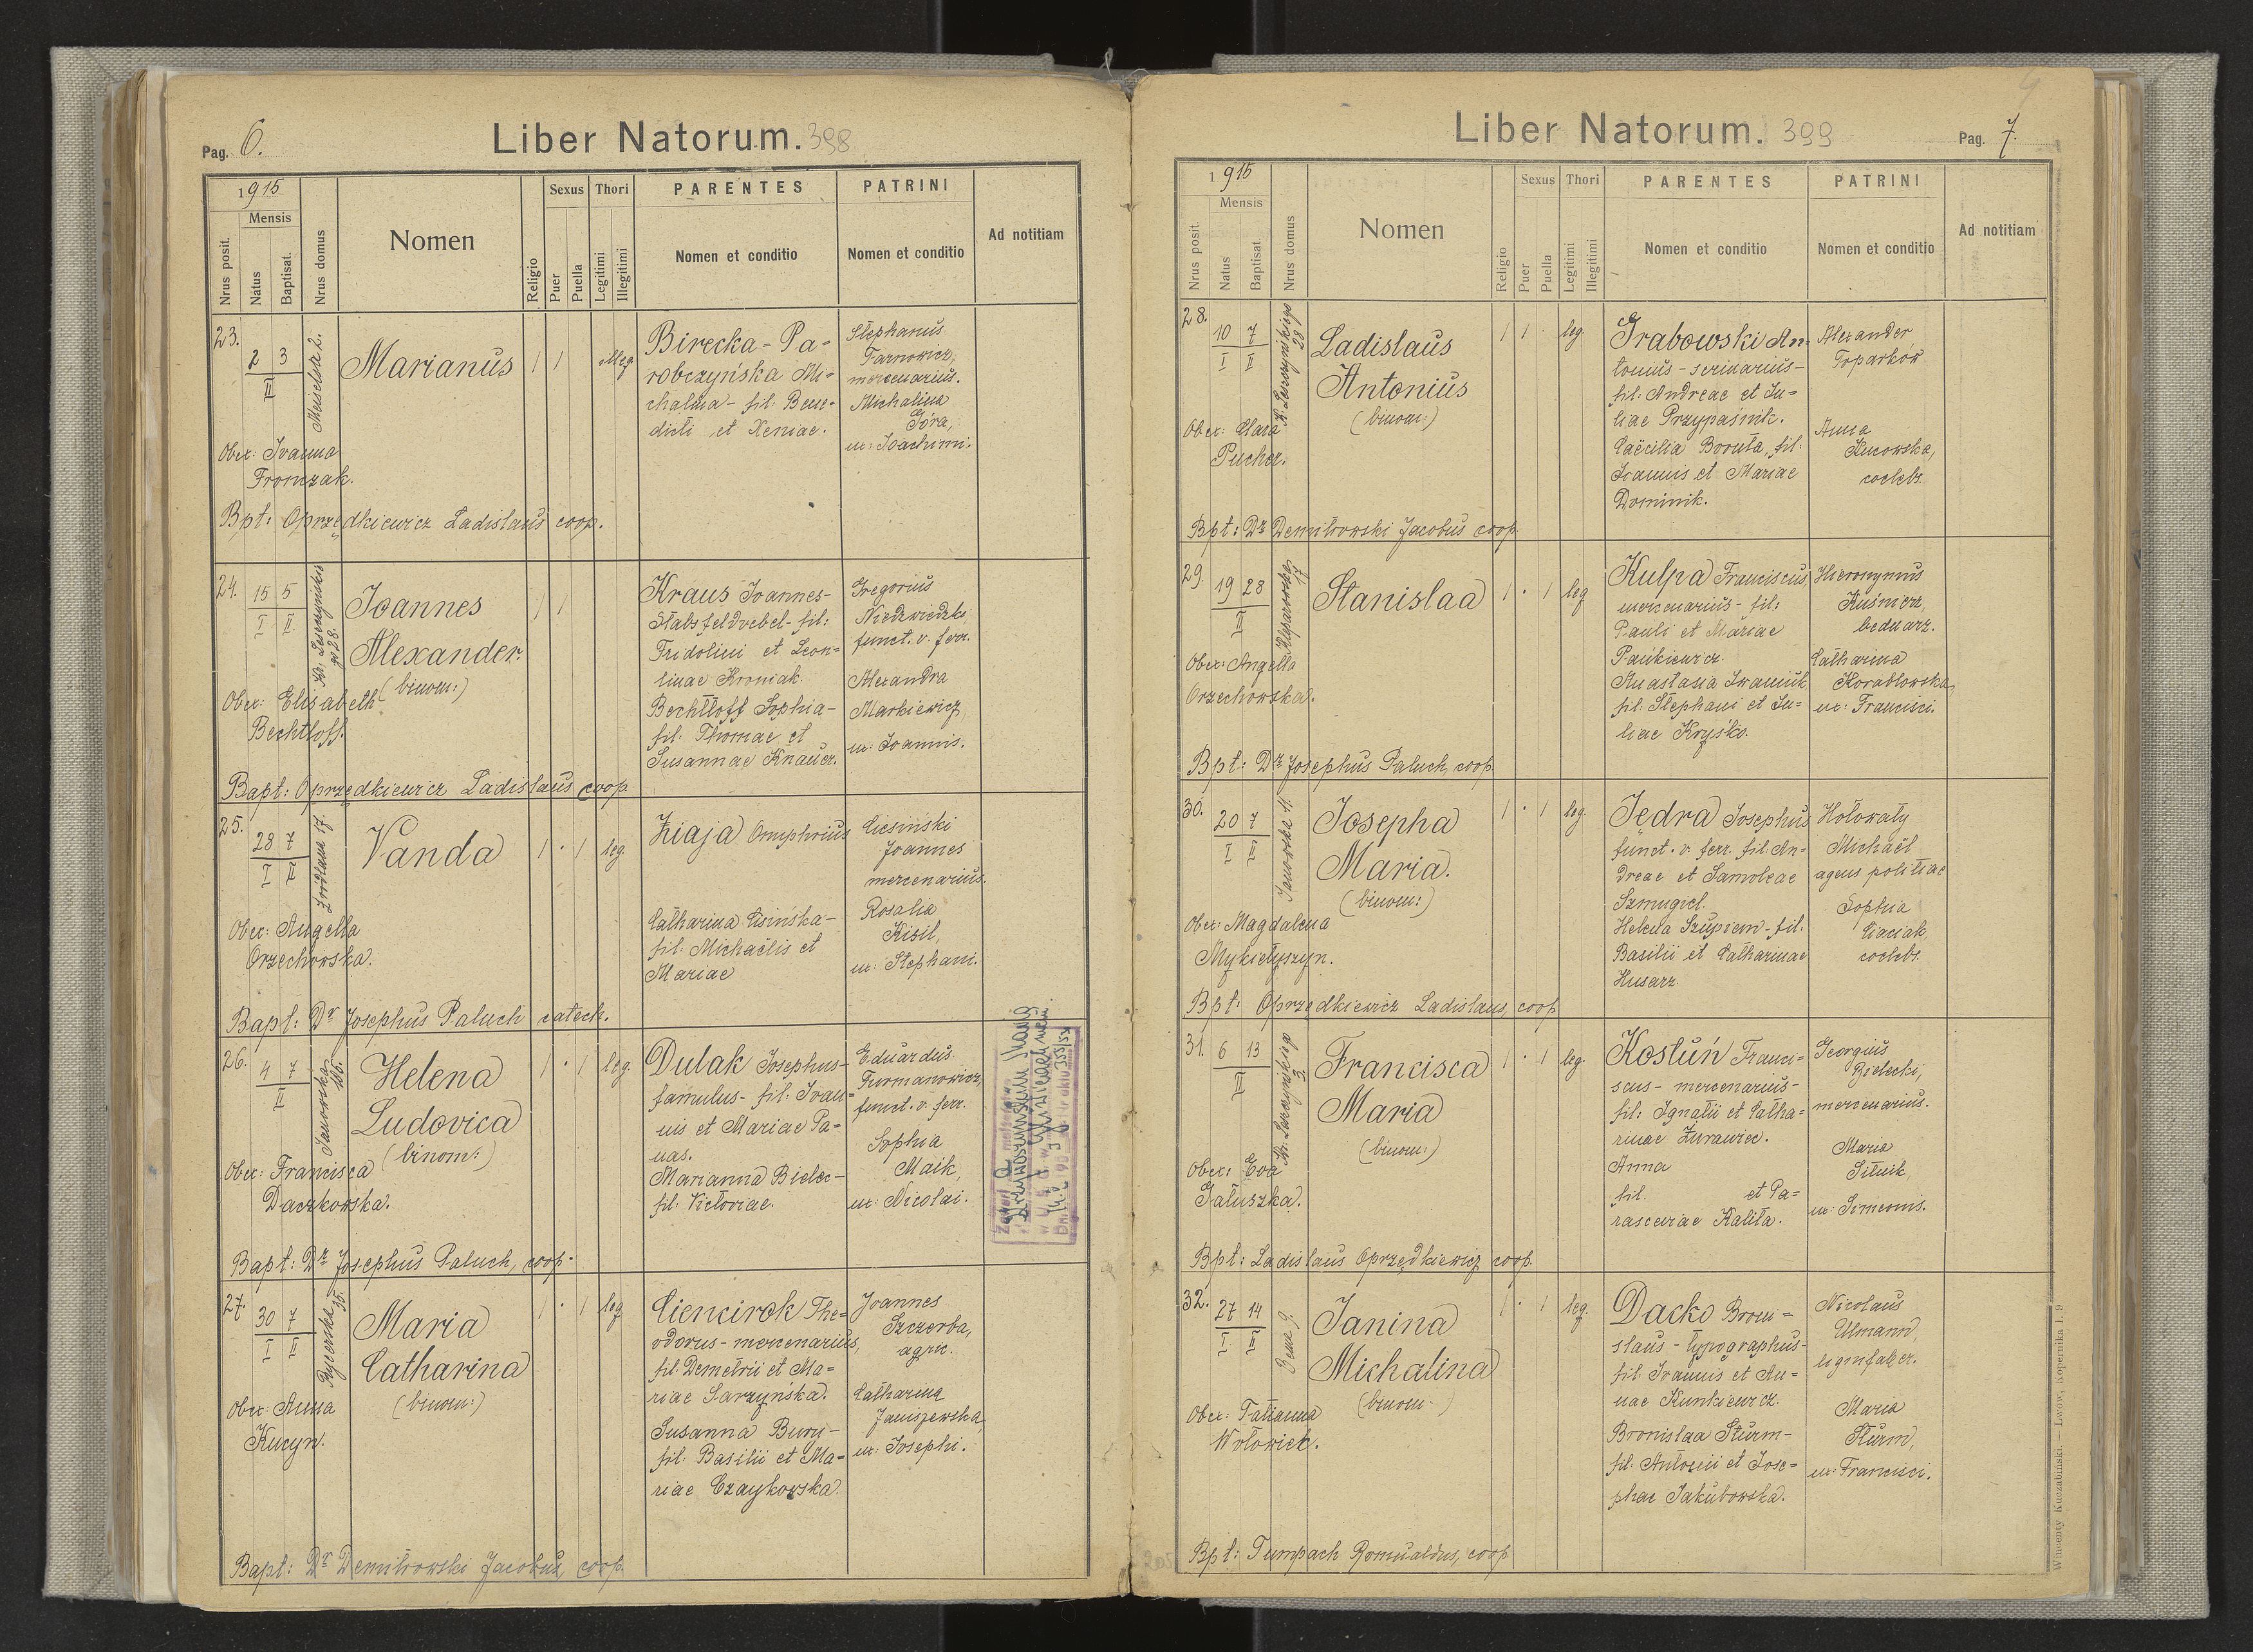 Pag. 6.
Liber Natorum. 398
1915
Mensis
Nrus posit.
Natus
Baptisat.
Nrus domus
Nomen
Religio
Sexus
Puer
Puella
Thori
Legitimi
Illegitimi
PARENTES
Nomen et conditio
PATRINI
Nomen et conditio
Ad notitiam
23.
2 3
II
Meiselsa 2.
Marianus
1 1
illeg
Birecka - Pa-
robczyńska Mi-
chalina - fil: Bene-
dicti et Xeniae.
Stephanus
Tarnowicz,
mercenarius.
Michalina
Góra,
ux: Joachimi.
Obex: Ivanna
Fronczak.
Bpt: Oprzędkiewicz Ladislaus coop.
24.
15 5
I II
Kr. Leszczyńskie
go 28.
Joannes
Alexander.
(binom:)
1 1
Kraus Joannes-
Stabsfeldvebel- fil:
Fridolini et Leon-
tinae Kroniak.
Bechtloff Sophia-
fil: Thomae et
Susannae Knauer.
Gregorius
Niedzwiedzki
funct. v. ferr.
Alexandra
Markiewicz,
ux: Joannis.
Obex: Elisabeth
Bechtloff.
Bapt: Oprzędkiewicz Ladislaus coop
25.
28 7
I II
Zródlana 17.
Vanda
1 · 1 leg
Ziaja Omphrius
Catharina Cisińska-
fil: Michaëlis et
Mariae
Ciesiński
Joannes
mercenarius.
Rosalia
Kisil,
ux: Stephani.
Obex: Angella
Orzechowska.
Bapt: Dr Josephus Paluch catech.
26.
4 7
II
Janowska
106.
Helena
Ludovica
(binom:)
1 · 1 leg.
Dulak Josephus-
famulus- fil: Ivan-
nis et Mariae Pa-
nas.
Marianna Bielec-
fil: Victoriae.
Eduardus
Furmanowicz,
funct. v. ferr.
Sophia
Maik,
ux: Nicolai.
Obex: Francisca
Daczkowska.
Bapt: Dr Josephus Paluch, coop.
27.
30 7
I II
Rycerska
35.
Maria
Catharina
(binom:)
1 · 1 leg
Ciencirok The-
odorus - mercenarius,
fil: Demetrii et Ma-
riae Sarzyńska.
Susanna Bury-
fil: Basilii et Ma-
riae Czaykowska.
Joannes
Szczerba,
agric.
Catharina
Janiszewska,
ux: Josephi.
Obex: Anna
Kucyn.
Bapt: Dr Demitrowski Jacobus, coop.
Liber Natorum. 399
Pag. 7.
1915
Mensis
Nrus posit.
Natus
Baptisat.
Nrus domus
Nomen
Religio
Sexus
Puer
Puella
Thori
Legitimi
Illegitimi
PARENTES
Nomen et conditio
PATRINI
Nomen et conditio
Ad notitiam
28.
10 7
I II
K. Leszczyńskiego
28
Ladislaus
Antonius
(binom:)
1 1 · leg.
Grabowski An-
tonius - scriniarius-
fil: Andreae et Ju-
liae Przypaśnik.
Caëcilia Boruta, fil:
Joannis et Mariae
Dominik.
Alexander
Toparków
Anna
Kucowska,
coelebs.
Obex: Clara
Pucher.
Bpt: Dr Demitrowski Jacobus coop
29.
19 28
II
Kleparowska
17
Stanislaa
1 · 1 leg
Kulpa Franciscus
mercenarius- fil:
Pauli et Mariae
Pankiewicz.
Anastasia Iwaniuk
fil: Stephani et Ju-
liae Kryśko.
Hieronymus
Kuśnierz,
bednarz.
Catharina
Korablowska,
ux: Francisci.
Obex: Angella
Orzechowska.
Bpt: Dr Josephus Paluch, coop
30.
20 7
I II
Janowska 11.
Josepha
Maria.
(binom:)
1 · 1 leg.
Jedra Josephus
funct. v. ferr. fil: An-
dreae et Samoleae
Szmugiel.
Helena Szupiem-fil:
Basilii et Catharinae
Husarz.
Hołowaty
Michaël
agens politiae
Sophia
Ciaciak,
coelebs.
Obex: Magdalena
Mykietyszyn.
Bpt: Oprzędkiewicz Ladislaus, coop
31.
6 13
II
Kr. Leszczyńskiego
3.
Francisca
Maria
(binom:)
1 · 1 leg.
Kostuń Franci-
scus - mercenarius-
fil: Ignatii et Catha-
rinae Żurawiec.
Anna
fil. et Pa-
rasceviae Kalita.
Georgius
Bielecki,
mercenarius.
Maria
Sitnik,
ux: Simeonis.
Obex: Eva
Gałuszka.
Bpt: Ladislaus Oprzędkiewicz coop.
32.
27 14
I II
Bema 9.
Janina
Michalina
(binom:)
1 · 1 leg.
Dacko Broni-
slaus - typographus-
fil: Ivannis et An-
nae Kunkiewicz.
Bronislaa Sturm-
fil: Antonii et Jose-
phae Jakubowska.
Nicolaus
Ulmann,
lignifaber.
Maria
Sturm,
ux: Francisci.
Obex: Tatianna
Wołowiek.
Bpt: Tumpach Romualdus, coop
Wincenty Kuczabiński. — Lwów, Kopernika l. 9